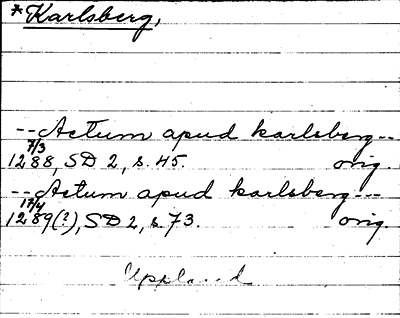 *Karlsberg,
--Actum apud karlsberg--
7/3
1288, SD 2, s. 45. orig.
--Actum apud karlsberg---
17/4
1289(?), SD 2, s. 73. orig.
Uppland